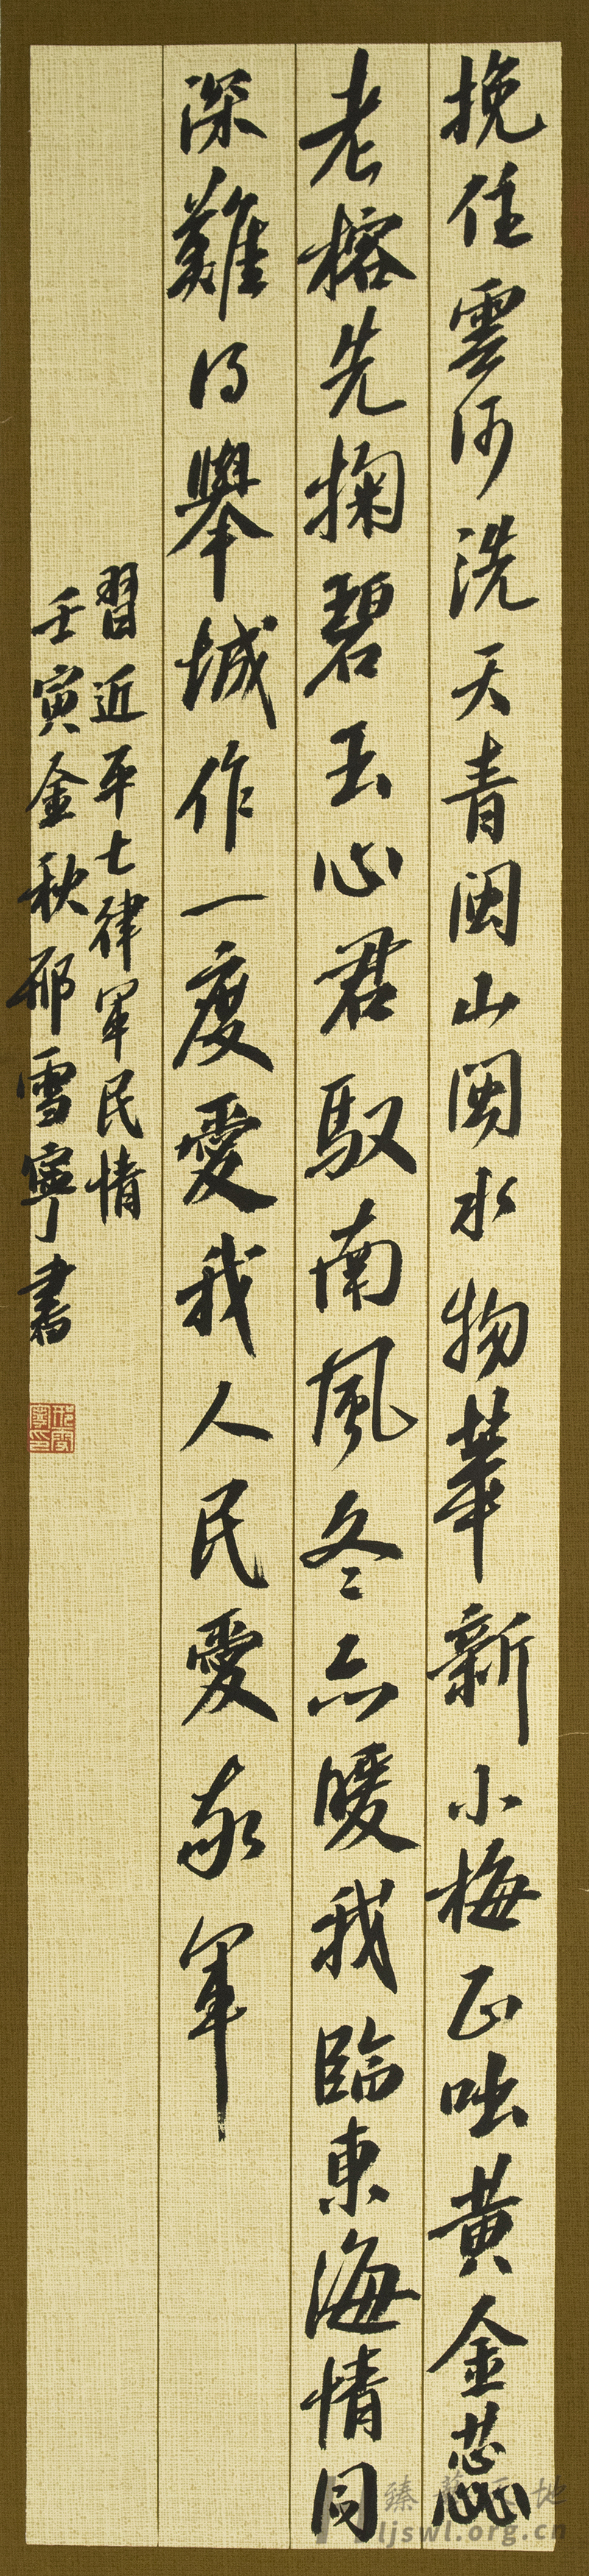 挽住雲河洗天青閩山閩水物華新小梅正吐黃金蕊
老榕先掬碧玉心君馭南風冬亦暖我臨東海情同
深難得舉城作一度愛我人民愛我軍
習近平七律軍民情
壬寅金秋邢雪寧書
邢雪寧印
ljswl.org.cn